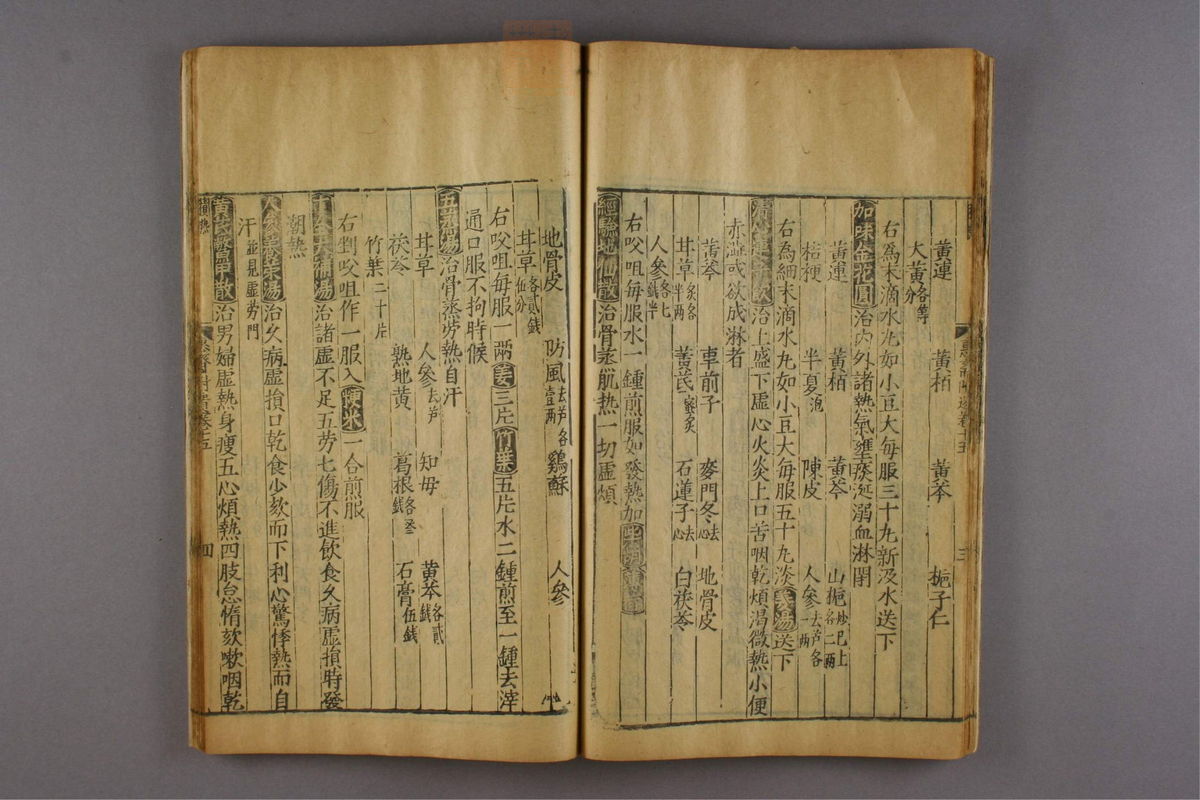 黃連　黃栢　黃芩　梔子仁
大黃各等分
右為末滴水丸如小豆大每服三十丸新汲水送下
加味金花圓治內外諸熱氣壅痰涎溺血淋閉
黃連　黃栢　黃芩　山梔炒已上各二兩
桔梗　半夏泡　陳皮　人參去芦各一兩
右為細末滴水丸如小豆大每服五十丸淡姜湯送下
清心蓮子飲治上盛下虛心火炎上口苦咽乾煩渴微熱小便
赤澁或欲成淋者
黃芩　車前子　麥門冬去心　地骨皮
甘草炙各半兩　黃芪蜜炙　石蓮子去心　白茯苓
人參各七錢半
右㕮咀每服水一鍾煎服如發熱加柴胡薄荷
經驗地仙散治骨蒸肌热一切虛煩
地骨皮　防風去芦各壹兩　鷄蘇　人參
甘草各貳錢伍分
右㕮咀每服一兩姜三片竹葉五片水二鍾煎至一鍾去滓
通口服不拘時候
五蒸湯治骨蒸劳熱自汗
甘草　人參去芦　知母　黃芩各貳錢
茯苓　熟地黃　葛根各叄錢　石膏伍錢
竹葉二十片
右剉㕮咀作一服入粳米一合煎服
十全大補湯治諸虛不足五劳七傷不進飲食久病虛損時發
潮熱
人參養榮湯治久病虛損口乾食少欬而下利心驚悸熱而自
汗並見虛劳門
黃芪鱉甲散治男婦虛熱身瘦五心煩熱四肢怠惰欬嗽咽乾